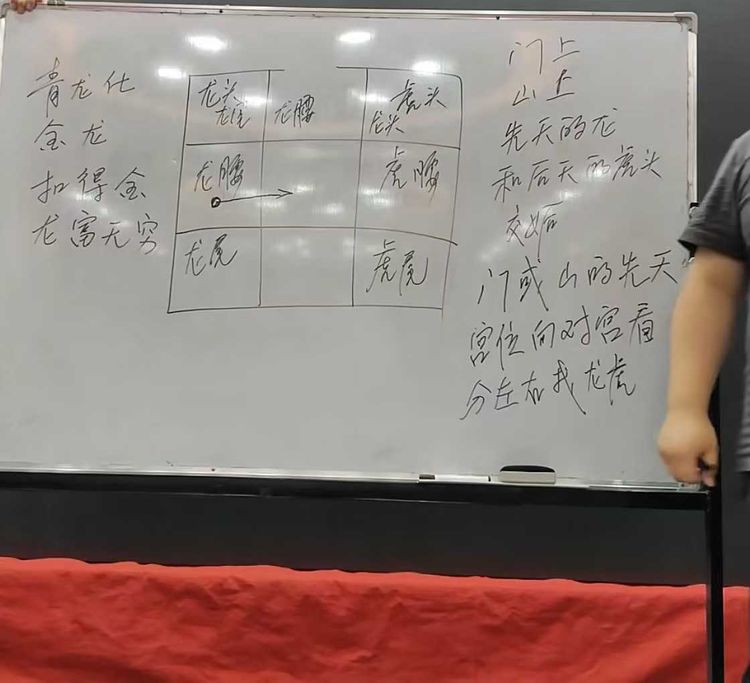 青龙化
金龙
扣得金
龙富无穷
龙头
龙尾
龙腰
虎头
龙头
龙腰
虎腰
龙尾
虎尾
门上
山上
先天的龙
和后天的虎头
交姤
门或山的先天
宫位向对宫看
分左右找龙虎